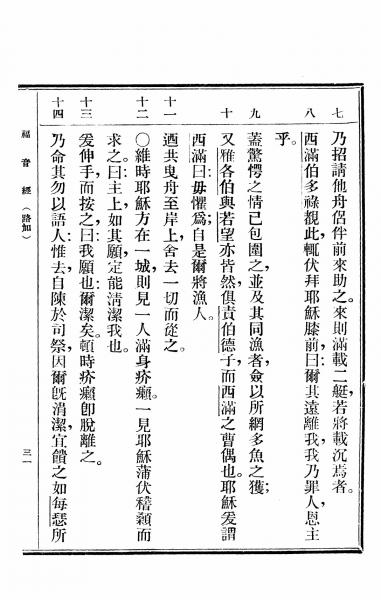 七 乃招請他舟侶伴前來助之。來則滿載二艇，若將載沉焉者。
八 西滿伯多祿覩此，輒伏拜耶穌膝前，曰：爾其遠離我，我乃罪人，恩主
乎。
九 蓋驚愕之情已包圍之，並及其同漁者，僉以所網多魚之獲；
十 又雅各伯與若望亦皆然，俱責伯德子，而西滿之曹偶也。耶穌爰謂
西滿曰：毋懼焉，自是爾將漁人。
十一 迺共曳舟至岸上，舍去一切而從之。
十二 〇維時耶穌方在一城，則見一人滿身疥癩。一見耶穌蒲伏稽顙而
求之。曰：主上如其願，定能清潔我也。
十三 爰伸手而按之，曰：我願也，爾潔矣。頓時疥癩卽脫離之。
十四 乃命其勿以語人：惟去，自陳於司祭，因爾旣涓潔，宜饋之如每瑟所
福音經（路加） 三一